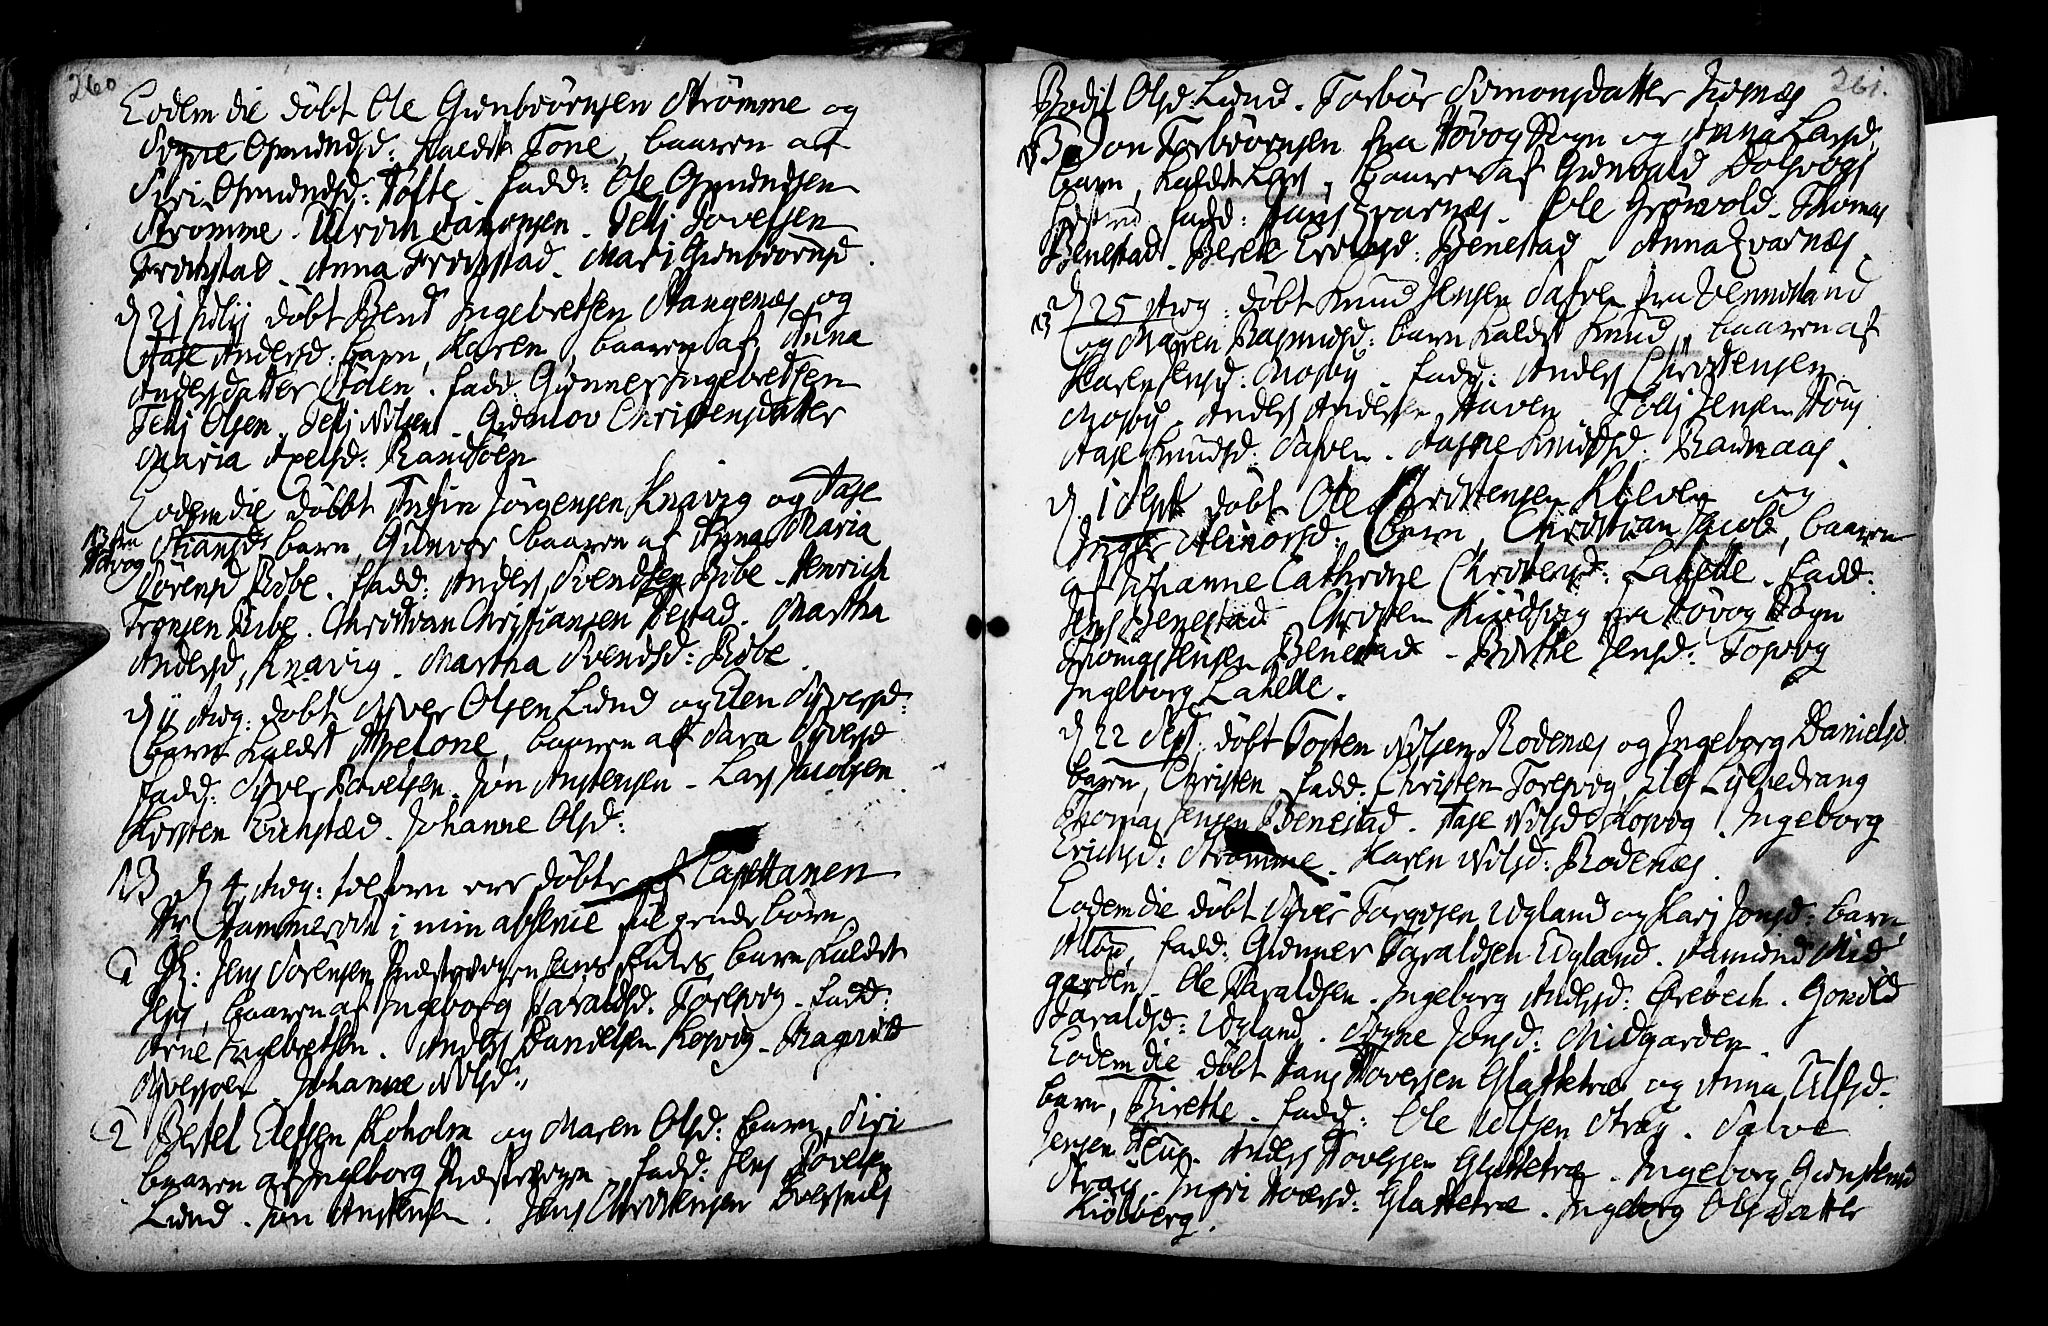 260
Eodem die döbt Ole Gunbiörnsen Strömme og
Signe Osmundsd: kaldet Tone, baaren af
Siri Osmundsd: Tofte. fadd: Ole Osmundsen
Strömme. Aanonsen. Tellj Tovelsen
Frøestad. Anna Frøestad. Mari Gunbiörnsd.
D 21 Julij döbt Bent Ingebretsen Stangenæs og
Aase Andersd: barn, Karen, baaren af Anna
Andersdatter Stöen. fadd: Gunner Ingebretsen
Tellj Olsen. Tellj Nilsen. Gudmov Christensdatter
Maria Axelsd: Randöen
Eodem die döbt Anfin Jörgensen Knavig og Aase
Stiansd: barn, Gunvor, baaren af Anna Maria
NB fra
Høvog
Sörensd Ribe. fadd: Anders Svendsen Ribe. Henrich
Tronsen Ribe. Christian Christiansen. Martha
Andersd, Knavig. Martha Svendsd: Ribe.
D 11 Aug: döbt Syver Olsen Lund og Elen Syversd:
barn kaldet Apelone, baaren af Sara Syversd
fadd: Syver Povelsen. Jon Anstensen. Lars Jacobsen
Kirsten. Johanne Olsd:
NB D 4 Aug: tilforn ere döbte af Capellanen
Hr Hammer i min absence fölgende börn
1 Jens Sörensen barn kaldet
Jens, baaren af Ingeborg Haraldsd: Torsvig. fadd:
Arne Ingebretsen. Anders Danielsen Kosvig. Magrete
Johanne Nilsd:
2 Bertel Elefsen Koholm og Maren Olsd: barn, Siri
baaren af Ingeborg. fadd: Jens Povelsen
Lund. Jon Anstensen. Jens Christensen
261.
Bodil Olsd: Lund. Torbör Simonsdatter
NB Jon Torbiörnsen fra Høvog Sogn og Anna Larsd:
barn, kaldet Lars, baaren af Gunvald Dolsvogs
hustru. fadd: Hans Qvarnæs. Ole Grönvold. Thomas
Benestad. Berete Erichsd: Benestad. Anna Qvarnæs.
D 25 Aug: döbt Knud Jensen fra Vennisland
NB
og Maren Rasmusd: barn kaldet Knud, baaren af
Karen Jensd: Mosby. fadd: Anders Christensen
Mosby. Anders Andersen Haven. Tellj Jensen
Aase Knudsd:. Aasne Knudsd:
D 1 Sept döbt Ole Christensen Kleven og
Inger: barn, Christian Jacob, baaren
af Johanne Cathrine Christensd: Lahelle. fadd:
Jens Benestad. Christen fra Høvog Sogn
Thomas Jensen Benestad. Birthe Jensd: Tosvig
Ingeborg Lahelle.
D 22 Sept: döbt Tosten Nilsen Rodenæs og Ingeborg Danielsd.
barn, Christen, fadd: Christen Torsvig, Elef
Thomas Jensen Benestad. Aase Nilsd: Kosvig. Ingeborg
Erichsd: Strømme. Karen Nilsd: Rodenæs.
Eodem die döbt Syver Torgusen Ugland og Karj Jonsd: barn,
fadd: Gunner Taraldsen Ugland. Aamund Mid
garden. Ole Haraldsen. Ingeborg Andersd: Örebech. Gonild
Taraldsd: Ugland. Signe Jonsd: Midgarden.
Eodem die döbt Hans Hoversen Glattetræ og Anna Ulfsd.
barn, Birethe. fadd: Ole Ulfsen Straj. Salve
Jensen. Anders Hoversen Glattetræ. Ingeborg Gunstensd
Straj. Ingri Hoversd: Glattetræ. Ingeborg Olsdatter
Kiölberg.